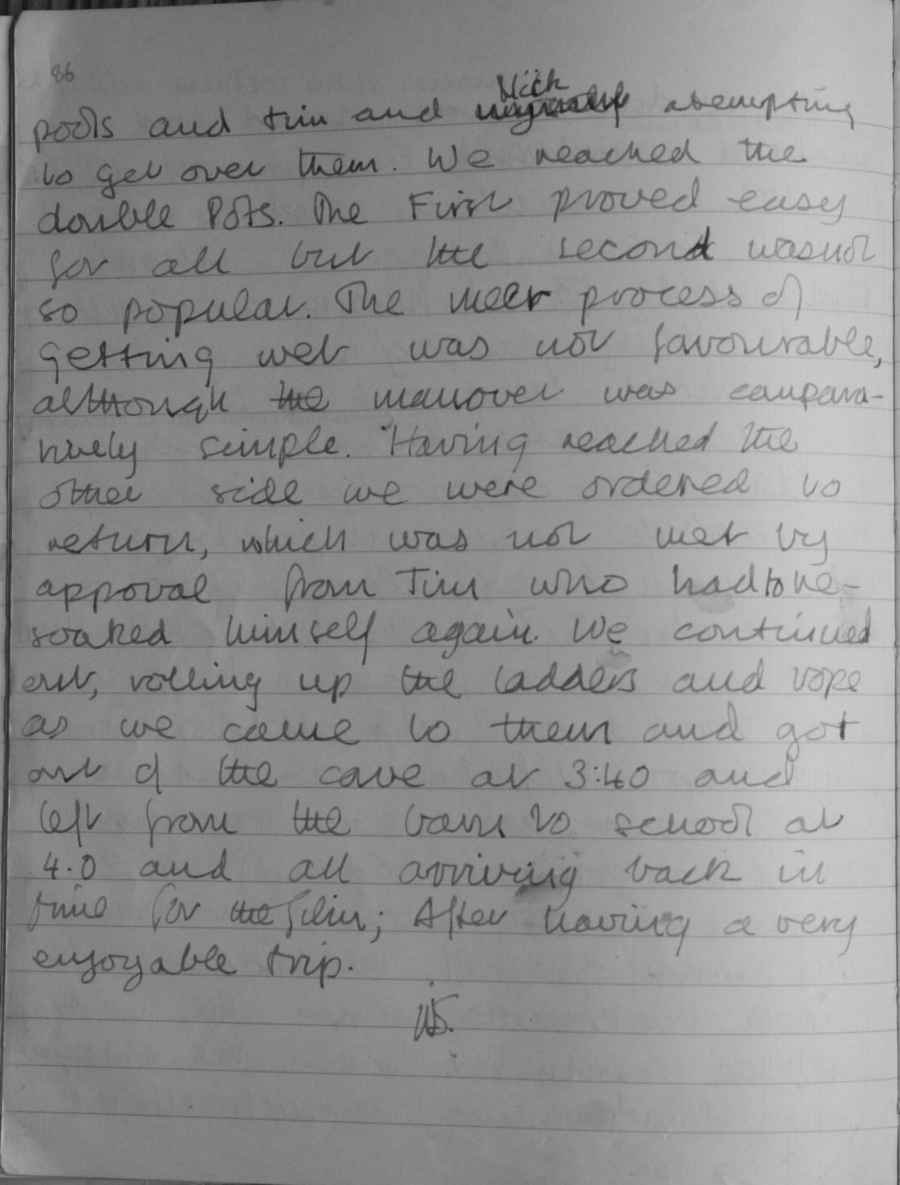 86
pools and tim and Nick atempting
to get over them. We reached the
double Pots. The First proved easy
for all but the second wasnot
so popular. The meer process of
getting wet was not favourable,
although the manover was compara-
tively simple. Having reached the
other side we were ordered to
return, which was not met by
approval from Tim who had to re-
soaked himself again. We continued
out, rolling up the ladders and rope
as we came to them and got
out of the cave at 3:40 and
left from the barn to school at
4.0 and all arriving back in
time for the film; After having a very
enjoyable trip.